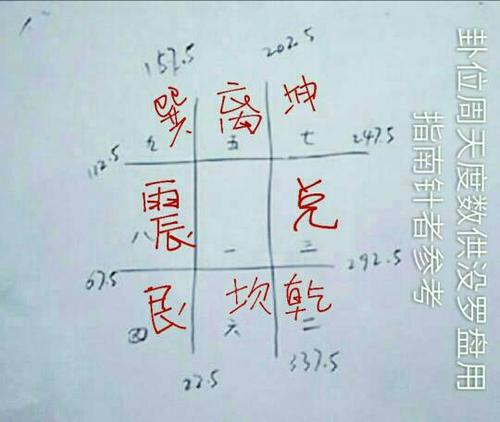 157.5 202.5
巽 离 坤
九 五 七
112.5 247.5
震 兑
八 一 三
67.5 292.5
艮 坎 乾
四 六 二
22.5 337.5
卦位周天度数供没罗盘用
指南针者参考